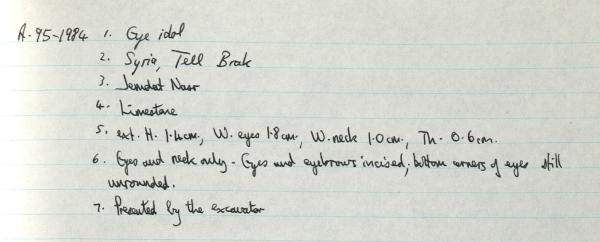 A.95-1984 1. Eye idol
2. Syria, Tell Brak
3. Jemdat Nasr
4. Limestone
5. ext. H. 1.4cm, W. eyes 1.8cm, W. neck 1.0cm, Th. 0.6cm.
6. Eyes and neck only - Eyes and eyebrows incised; bottom corners of eyes still
unrounded.
7. Presented by the excavator